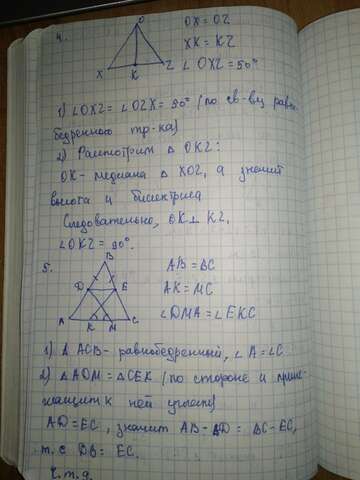 4.
O
X K Z
OX = OZ
XK = KZ
∠OXZ = 50°
1) ∠OXZ = ∠OZX = 50° (по св-ву равно-
бедренного тр-ка)
2) Рассмотрим △ OKZ:
OK - медиана △ XOZ, а значит
высота и биссектриса
Следовательно, OK ⊥ KZ,
∠OKZ = 90°.
5.
B
D E
A K M C
AB = BC
AK = MC
∠DMA = ∠EKC
1) △ ACB - равнобедренный, ∠A = ∠C
2) △ADM = △CEK (по стороне и приле-
жащим к ней углам)
AD = EC, значит AB - AD = BC - EC,
т.е DB = EC.
Ч.т.д.